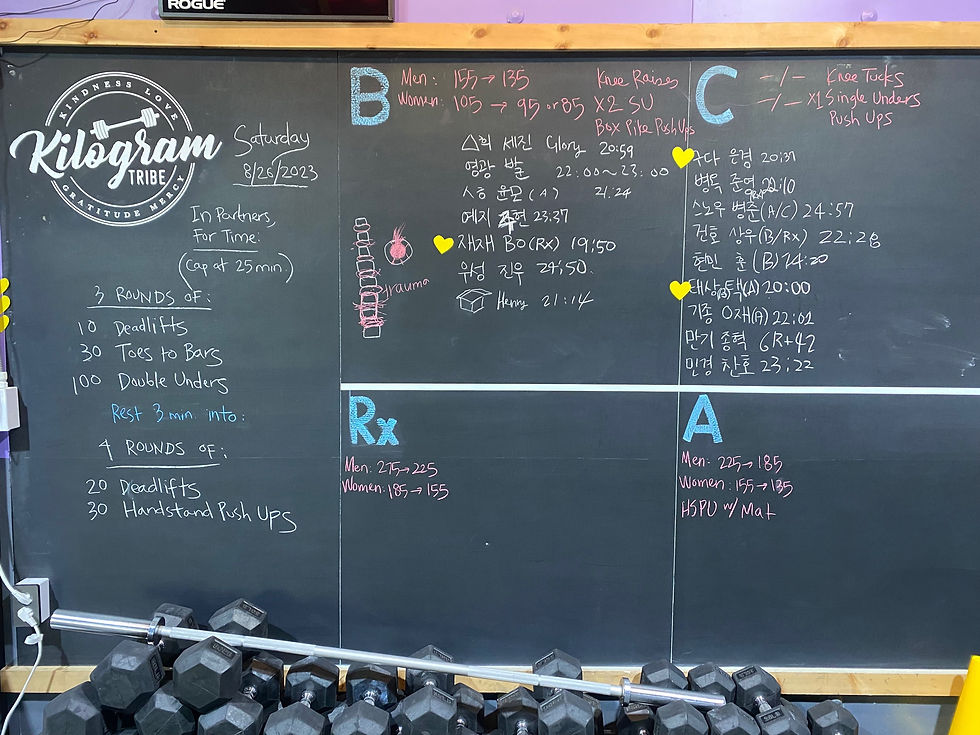 ROGUE
KINDNESS LOVE
Kilogram
TRIBE
GRATITUDE MERCY
Saturday
8/26/2023
In Partners,
For Time:
(Cap at 25 min.)
3 ROUNDS OF:
10 Deadlifts
30 Toes to Bars
100 Double Unders
Rest 3 min. into:
4 ROUNDS OF:
20 Deadlifts
30 Handstand Push Ups
B
Men: 155→135
Women: 105 → 95 or 85
Knee Raises
X2 SU
Box Pike Push Ups
세진 Glory 20:59
영광 발 22:00~23:00
윤모 (A) 21:24
예지 현 23:37
재재 BO (Rx) 19:50
우성 진우 24:50
Henry 21:14
trauma
C
-/- Knee Tucks
-/- X1 Single Unders
Push Ups
은경 20:37
병욱 준영 22:10
스노우 병준 (A/C) 24:57
건호 상우 (B/Rx) 22:28
현민 훈 (B) 24:20
태상 택 (A) 20:00
기종 O재 (A) 22:02
만기 종혁 6R+42
민경 찬호 23:22
Rx
Men: 275→225
Women: 185→155
A
Men: 225→185
Women: 155→135
HSPU w/ Mat